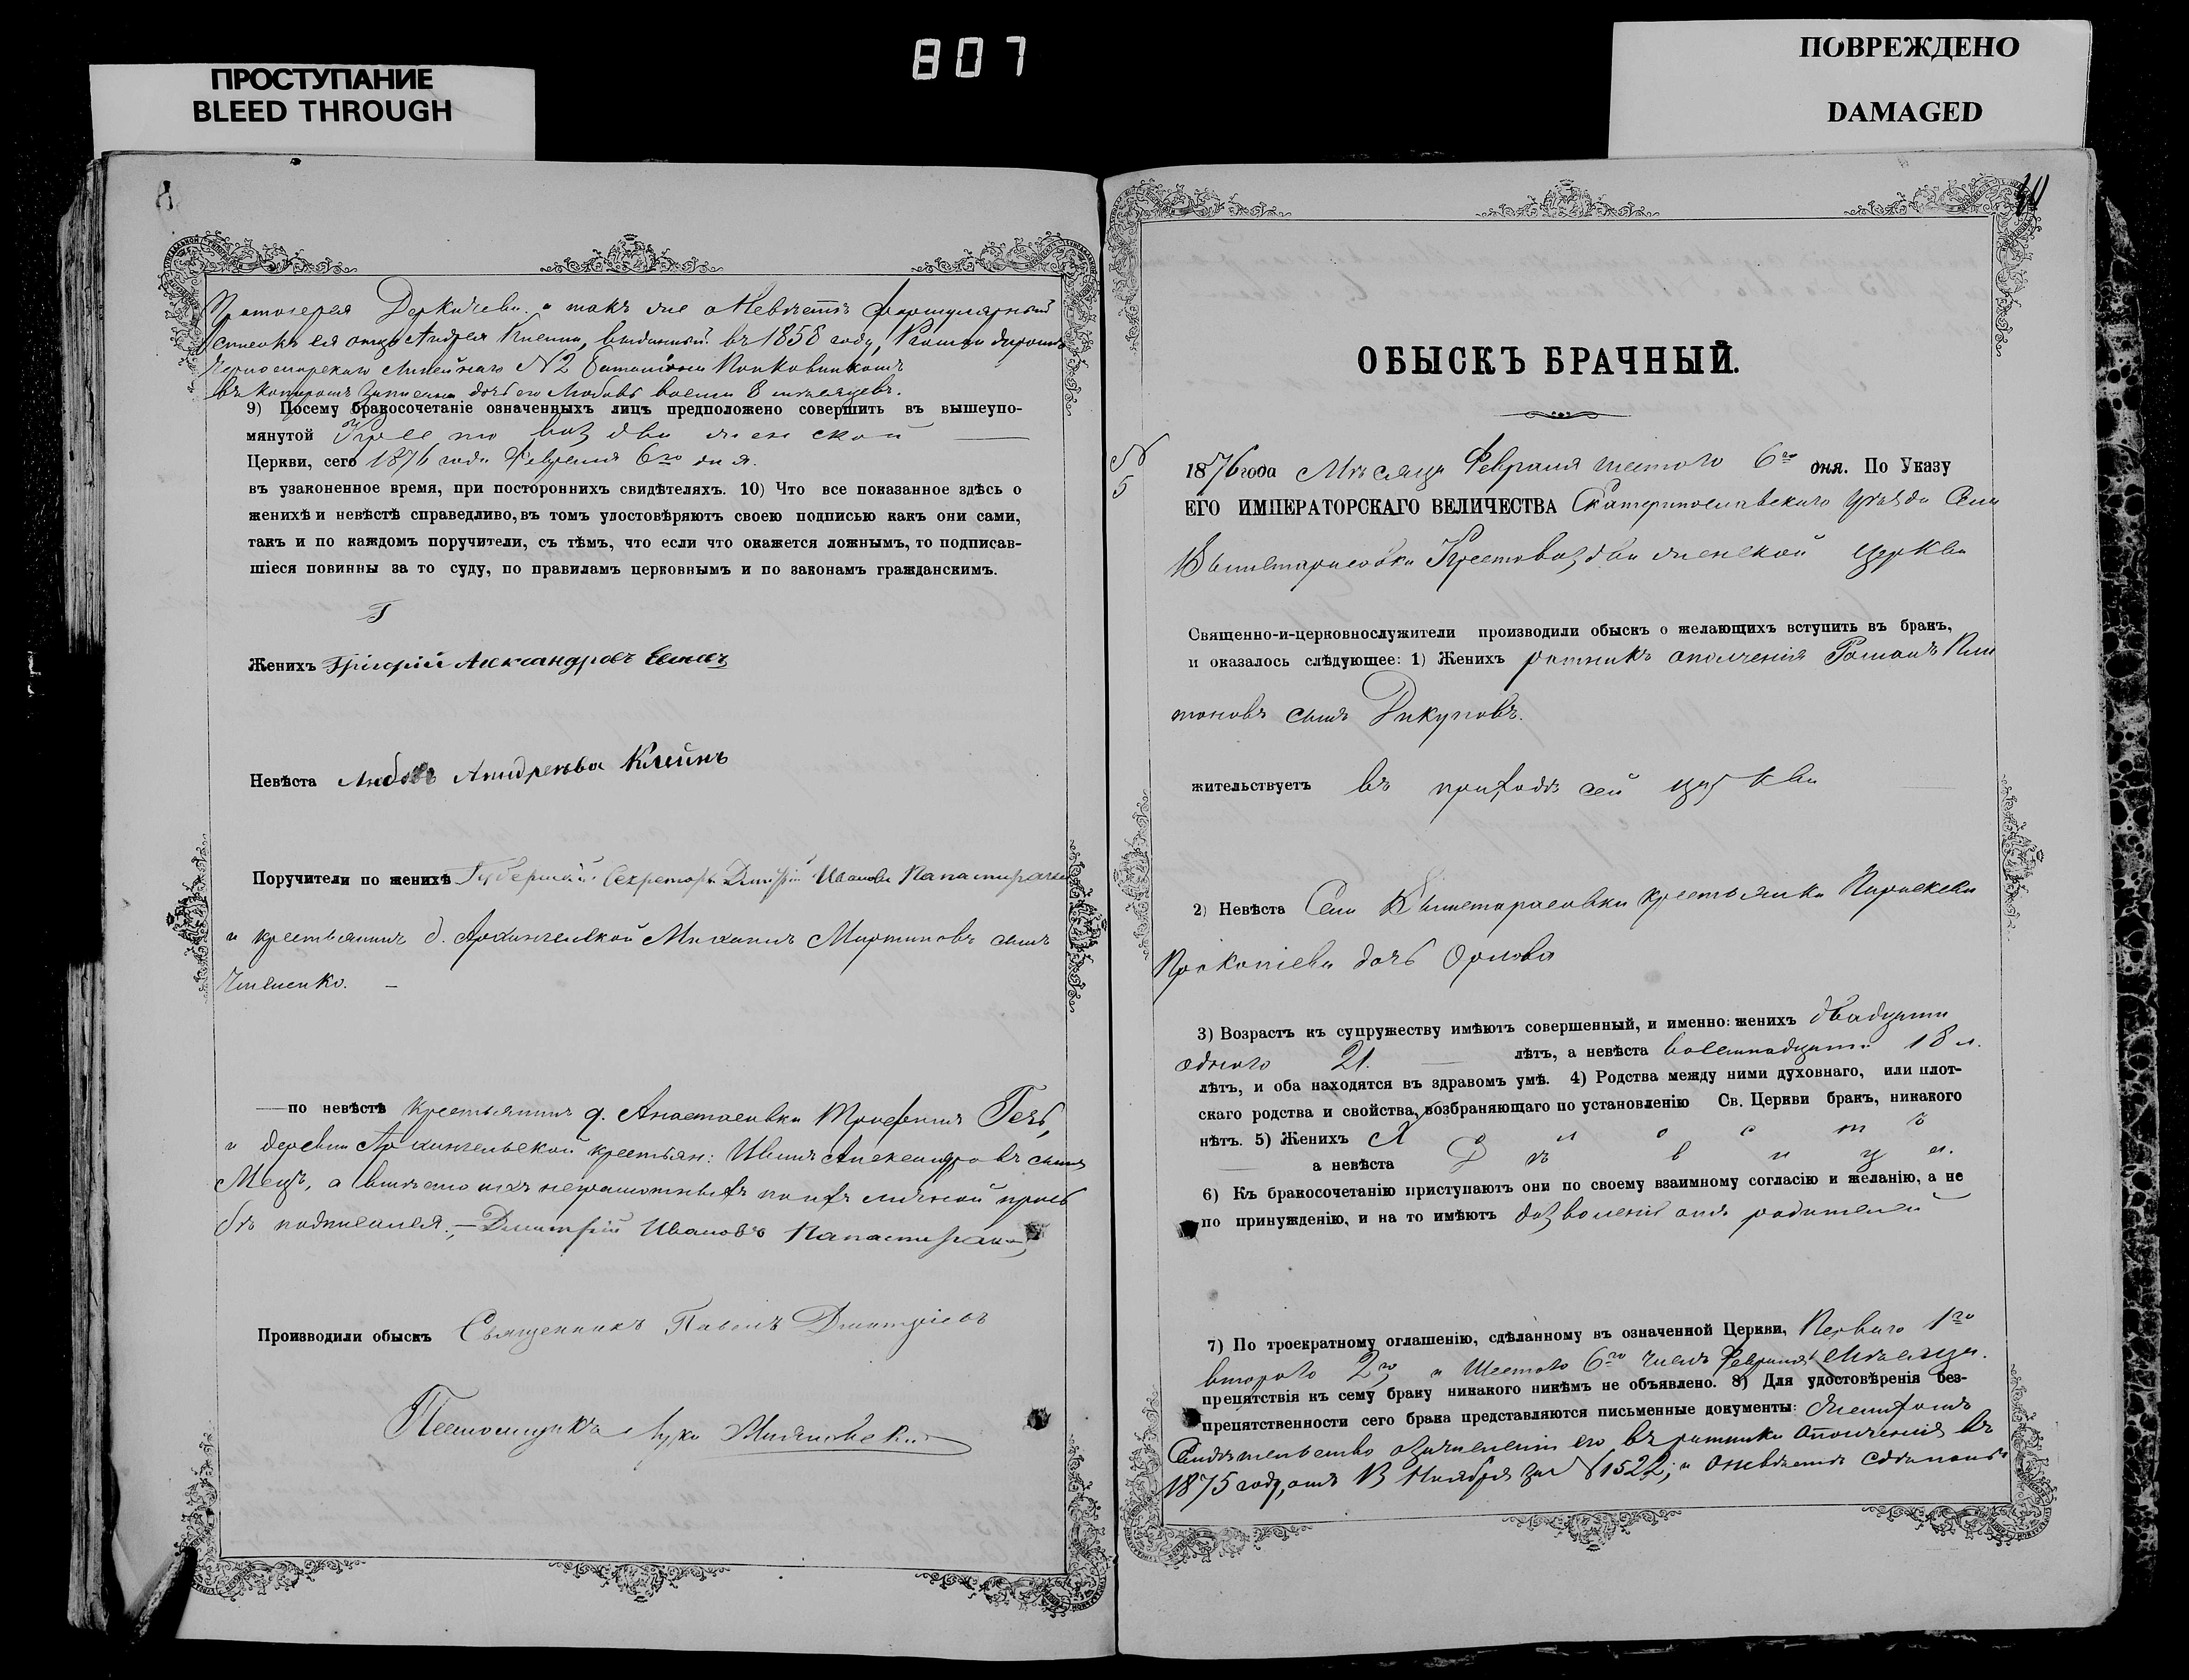 807
ПРОСТУПАНИЕ
BLEED THROUGH
ПОВРЕЖДЕНО
DAMAGED
Протоіерея а такъ же о Невѣстѣ формулярный
списокъ ея отца Андрея выданный въ 1858 году,
Черноморскаго Линейнаго №2 Баталіона Полковникомъ
въ которомъ записана дочь его Любовь восьми 8 мѣсяцевъ.
9) Посему бракосочетаніе означенныхъ лицъ предположено совершить въ вышеупо-
мянутой Кресто воздвиженской
Церкви, сего 1876 года Февраля 6го дня.
въ узаконенное время, при постороннихъ свидѣтеляхъ. 10) Что все показанное здѣсь о
женихѣ и невѣстѣ справедливо, въ томъ удостовѣряютъ своею подписью какъ они сами,
такъ и по каждомъ поручители, съ тѣмъ, что если что окажется ложнымъ, то подписав-
шіеся повинны за то суду, по правиламъ церковнымъ и по законамъ гражданскимъ.
Г
Женихъ Григорій Александровъ
Невѣста Любовь Андреева Клейнъ
Поручители по женихѣ Губернскій Секретарь Дмитрій Ивановъ
и крестьянинъ д. Архангельской Михаилъ Мартиновъ сынъ
по невѣстѣ крестьянинъ д. Анастасовки Трофимъ
и деревни Архангельской крестьян: Иванъ Александровъ сынъ
а вмѣсто ихъ неграмотныхъ по ихъ личной прось
бѣ подписался. — Дмитрій Ивановъ
Производили обыскъ Священникъ Павелъ Дмитріевъ
Псаломщикъ Лука
ОБЫСКЪ БРАЧНЫЙ.
№
5
1876 года Мѣсяца Февраля шестого 6го дня. По Указу
ЕГО ИМПЕРАТОРСКАГО ВЕЛИЧЕСТВА Екатеринославскаго уѣзда Села
Вышетарасовки Крестовоздвиженской церкви
Священно-и-церковнослужители производили обыскъ о желающихъ вступить въ бракъ,
и оказалось слѣдующее: 1) Женихъ ратникъ ополченія Романъ Пла
тоновъ сынъ Дикуновъ.
жительствуетъ въ приходѣ сей церкви
2) Невѣста Села Вышетарасовки крестьянка Параскева
Прокопіева дочь Орлова
3) Возрастъ къ супружеству имѣютъ совершенный, и именно: женихъ двадцати
одного 21. лѣтъ, а невѣста восемнадцати 18 л.
лѣтъ, и оба находятся въ здравомъ умѣ. 4) Родства между ними духовнаго, или плот-
скаго родства и свойства, возбраняющаго по установленію Св. Церкви бракъ, никакого
нѣтъ. 5) Женихъ Х о л о с т ъ
а невѣста Д ѣ в и ц а.
6) Къ бракосочетанію приступаютъ они по своему взаимному согласію и желанію, а не
по принужденію, и на то имѣютъ дозволеніе отъ родителей
7) По троекратному оглашенію, сдѣланному въ означенной Церкви, Перваго 1го
второго 2го и Шестого 6го числъ Февраля Мѣсяца.
препятствія къ сему браку никакого никѣмъ не объявлено. 8) Для удостовѣренія без-
препятственности сего брака представляются письменные документы: Женихомъ
Свидѣтельство о зачисленіи его въ ратники Ополченія въ
1875 году, отъ 13 Ноября за № 1522; а о невѣстѣ